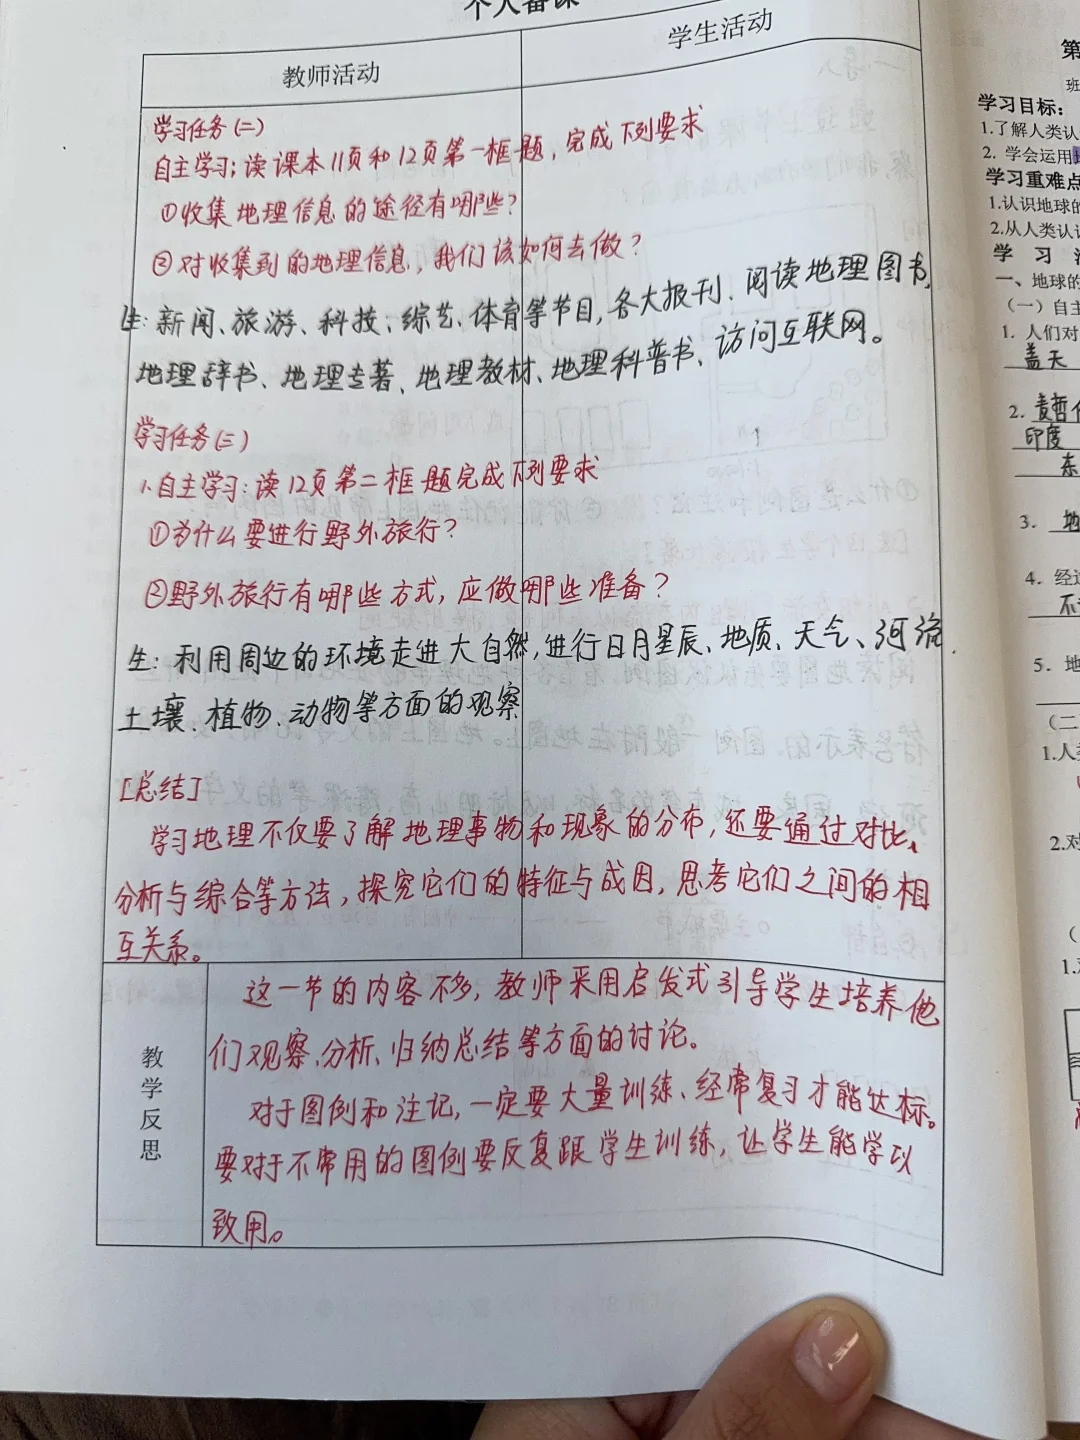 个人备课
教师活动
学生活动
学习任务(二)
自主学习:读课本11页和12页第一框题,完成下列要求
①收集地理信息的途径有哪些?
②对收集到的地理信息,我们该如何去做?
生:新闻、旅游、科技、综艺、体育等节目,各大报刊、阅读地理图书,
地理辞书、地理专著、地理教材、地理科普书、访问互联网。
学习任务(三)
1.自主学习:读12页第二框题完成下列要求
①为什么要进行野外旅行?
②野外旅行有哪些方式,应做哪些准备?
生:利用周边的环境走进大自然,进行日月星辰、地质、天气、河流.
土壤、植物、动物等方面的观察
[总结]
学习地理不仅要了解地理事物和现象的分布,还要通过对比、
分析与综合等方法,探究它们的特征与成因,思考它们之间的相
互关系。
教学反思
这一节的内容不多,教师采用启发式引导学生培养他
们观察、分析、归纳总结等方面的讨论。
对于图例和注记,一定要大量训练、经常复习才能达标。
要对于不常用的图例要反复跟学生训练,让学生能学以
致用。
第
班
学习目标:
1.了解人类认
2. 学会运用
学习重难点
1.认识地球的
2.从人类认识
学 习
一、地球的
(一)自主
1. 人们对
盖天
2.
印度
东
3.
4. 经过
5. 地
(二
1.人类
2.对
(
1.